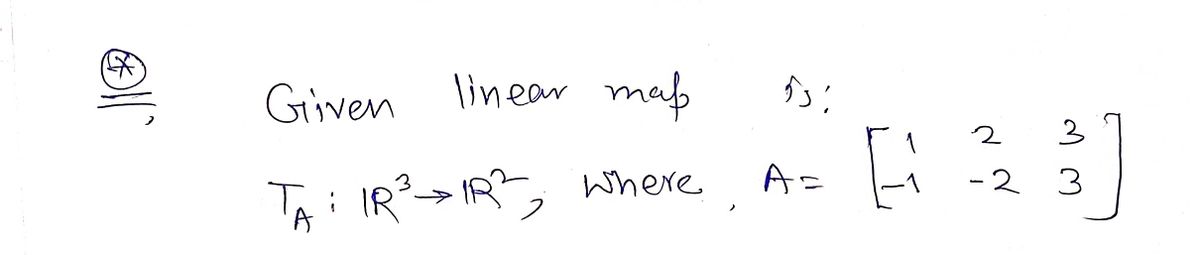 (*), Given linear map is:
T_A : ℝ³ → ℝ², where, A = [1 2 3; -1 -2 3]